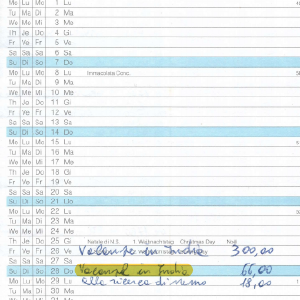 Mo Lu Mo 1 Lu
Tu Ma Di 2 Ma
We Me Mi 3 Me
Th Je Do 4 Gi
Fr Ve Fr 5 Ve
Sa Sa Sa 6 Sa
Su Di So 7 Do
Mo Lu Mo 8 Lu Immacolata Conc.
Tu Ma Di 9 Ma
We Me Mi 10 Me
Th Je Do 11 Gi
Fr Ve Fr 12 Ve
Sa Sa Sa 13 Sa
Su Di So 14 Do
Mo Lu Mo 15 Lu
Tu Ma Di 16 Ma
We Me Mi 17 Me
Th Je Do 18 Gi
Fr Ve Fr 19 Ve
Sa Sa Sa 20 Sa
Su Di So 21 Do
Mo Lu Mo 22 Lu
Tu Ma Di 23 Ma
We Me Mi 24 Me
Th Je Do 25 Gi Natale di N.S. 1. Weihnachtstag Christmas Day Noël
Fr Ve Fr 26 Ve Vacanze in India 300,00
Sa Sa Sa 27 Sa
Su Di So 28 Do Vacanze in India 66,00
Mo Lu Mo 29 Lu alla ricerca di nemo 18,00
Tu Ma Di 30 Ma